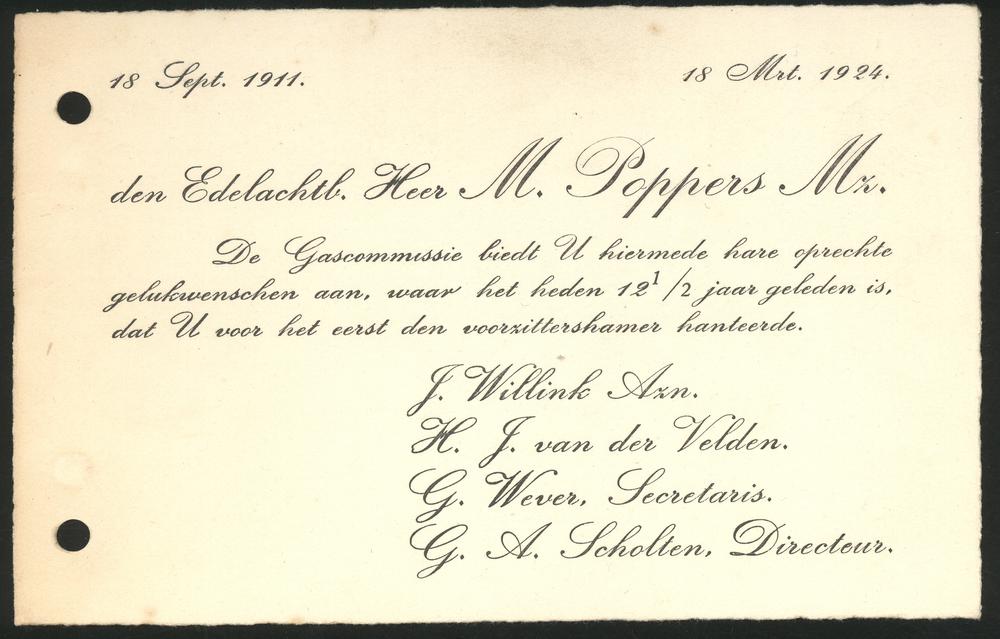 18 Sept. 1911. 18 Mrt. 1924.
den Edelachtb. Heer M. Poppers Mz.
De Gascommissie biedt U hiermede hare oprechte
gelukwenschen aan, waar het heden 12 1/2 jaar geleden is,
dat U voor het eerst den voorzittershamer hanteerde.
J. Willink Azn.
H. J. van der Velden.
G. Wever, Secretaris.
G. A. Scholten, Directeur.